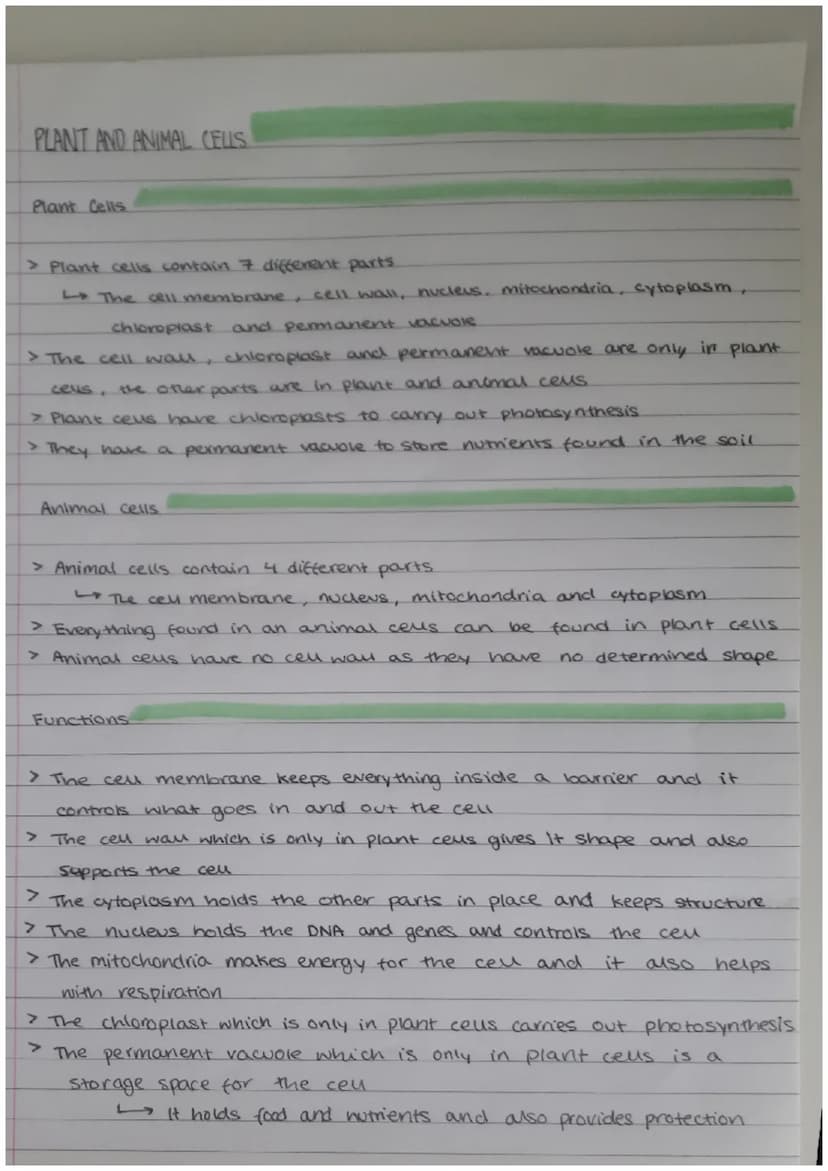 PLANT AND ANIMAL CELLS
Plant Cells
> Plant cells contain 7 different parts
↳ The cell membrane, cell wall, nucleus, mitochondria, cytoplasm,
chloroplast and permanent vacuole
> The cell wall, chloroplast and permanent vacuole are only in plant
cells, the other parts are in plant and animal cells
> Plant cells have chloroplasts to carry out photosynthesis
> They have a permanent vacuole to store nutrients found in the soil
Animal cells
> Animal cells contain 4 different parts
↳ The cell membrane, nucleus, mitochondria and cytoplasm
> Everything found in an animal cells can be found in plant cells
> Animal cells have no cell wall as they have no determined shape
Functions
> The cell membrane keeps everything inside a barrier and it
controls what goes in and out the cell
> The cell wall which is only in plant cells gives it shape and also
supports the cell
> The cytoplasm holds the other parts in place and keeps structure
> The nucleus holds the DNA and genes and controls the cell
> The mitochondria makes energy for the cell and it also helps
with respiration
> The chloroplast which is only in plant cells carries out photosynthesis
> The permanent vacuole which is only in plant cells is a
storage space for the cell
↳ It holds food and nutrients and also provides protection